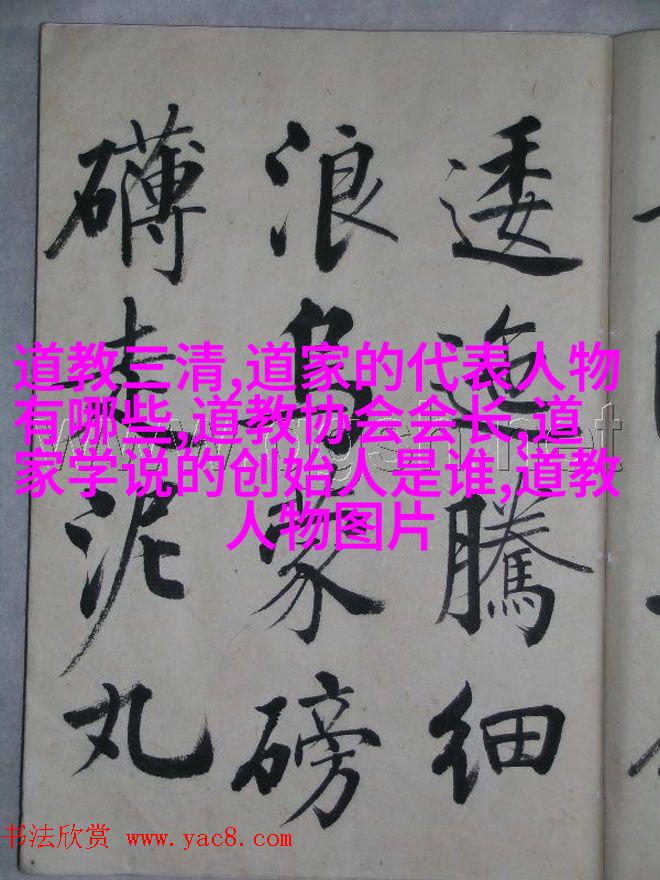 道教三清,道家的代表人物
有哪些,道教协会会长,道
家学说的创始人是谁,道教
人物图片
逶迤騰細
浪烏蒙磅
礴走泥丸
书法欣赏 www.yac8.com